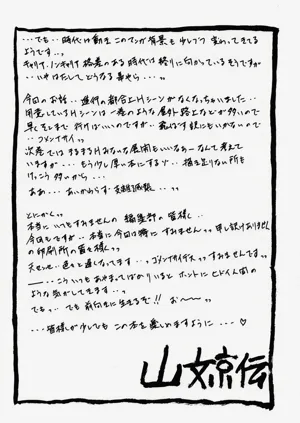 ...でも..時代は動き このマンガ背景も少しづつ 変わってきてる
ようです..。
キャリア、ノンキャリア 格差のある時代は終りに向かっているそうですが
...いやはたしてどうなる事やら...。
今回のお話.. 進行の都合上Hシーンがなくなっちゃいました..
用意しているHシーンは 屋外 路上などが多いので
早くそこまで 行けばいいのですが..
..ゴメンナサイ..
次巻では まるまるHみたいな展開もいいなぁーなんて考えて
いますが....もう少し厚い本にするゾ.. 描き足りない所も
けっこう多いから...
ああ...あいかわらず 支離滅裂...。
とにかく。
本当に いつもすみません 編集部の皆様..
今回もですが..本当に今回は特に すみません。申し訳ありません
の印刷所の皆々様。
大センセ..色々と遅くなってます...。ゴメンナサイデス。すみませんです。
──...こういつも あやまってばかりいると ホントに ヒドイ人間の
ような気がしてきます...。
でもっ..でも前向きに生きるぞ!! お〜〜。
...皆様が少しでも この本を楽しめますように...♡
山文京伝